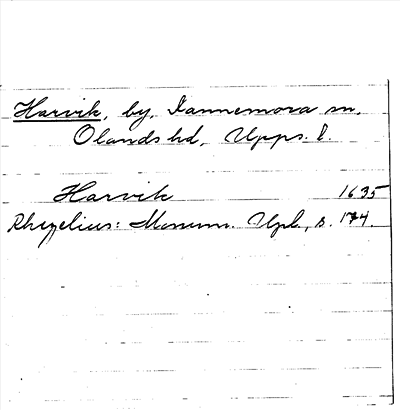 Harvik, by, Dannemora sn,
Olands hd, Upps. l.
Harvik 1635
Rhezelius: Monum. Upl., s. 174.